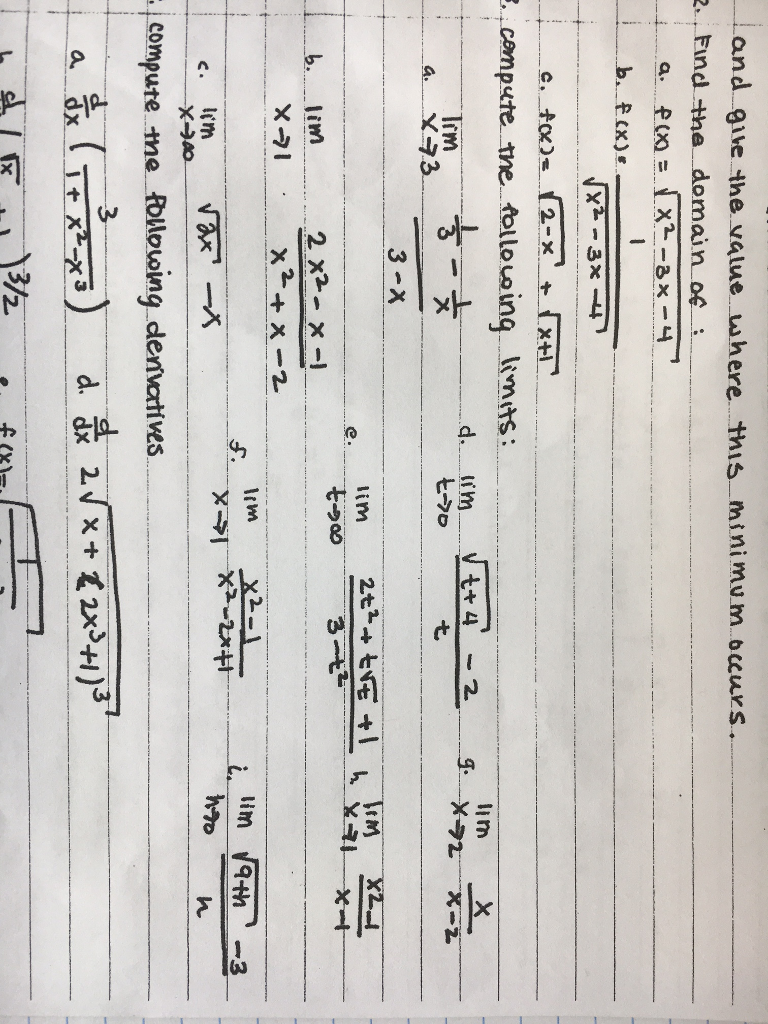 and give the value where this minimum occurs.
2. Find the domain of :
a. f(x) = √(x² - 3x - 4)
b. f(x) = 1/√(x² - 3x - 4)
c. f(x) = √(2-x) + √(x+1)
3. compute the following limits:
a. lim x→3 (1/3 - 1/x)/(3-x)
d. lim t→0 (√(t+4) - 2)/t
g. lim x→2 x/(x-2)
b. lim x→1 (2x² - x - 1)/(x² + x - 2)
e. lim t→∞ (2t² + t√t + 1)/(3-t²)
h. lim x→1 (x²-1)/(x-1)
c. lim x→∞ √(2x) - x
f. lim x→1 (x²-1)/(x²-2x+1)
i. lim h→0 (√(9+h) - 3)/h
compute the following derivatives
a. d/dx (3/(1+x²-x³))
d. d/dx 2√(x + (2x³+1)³)
)^3/2
f(x)=